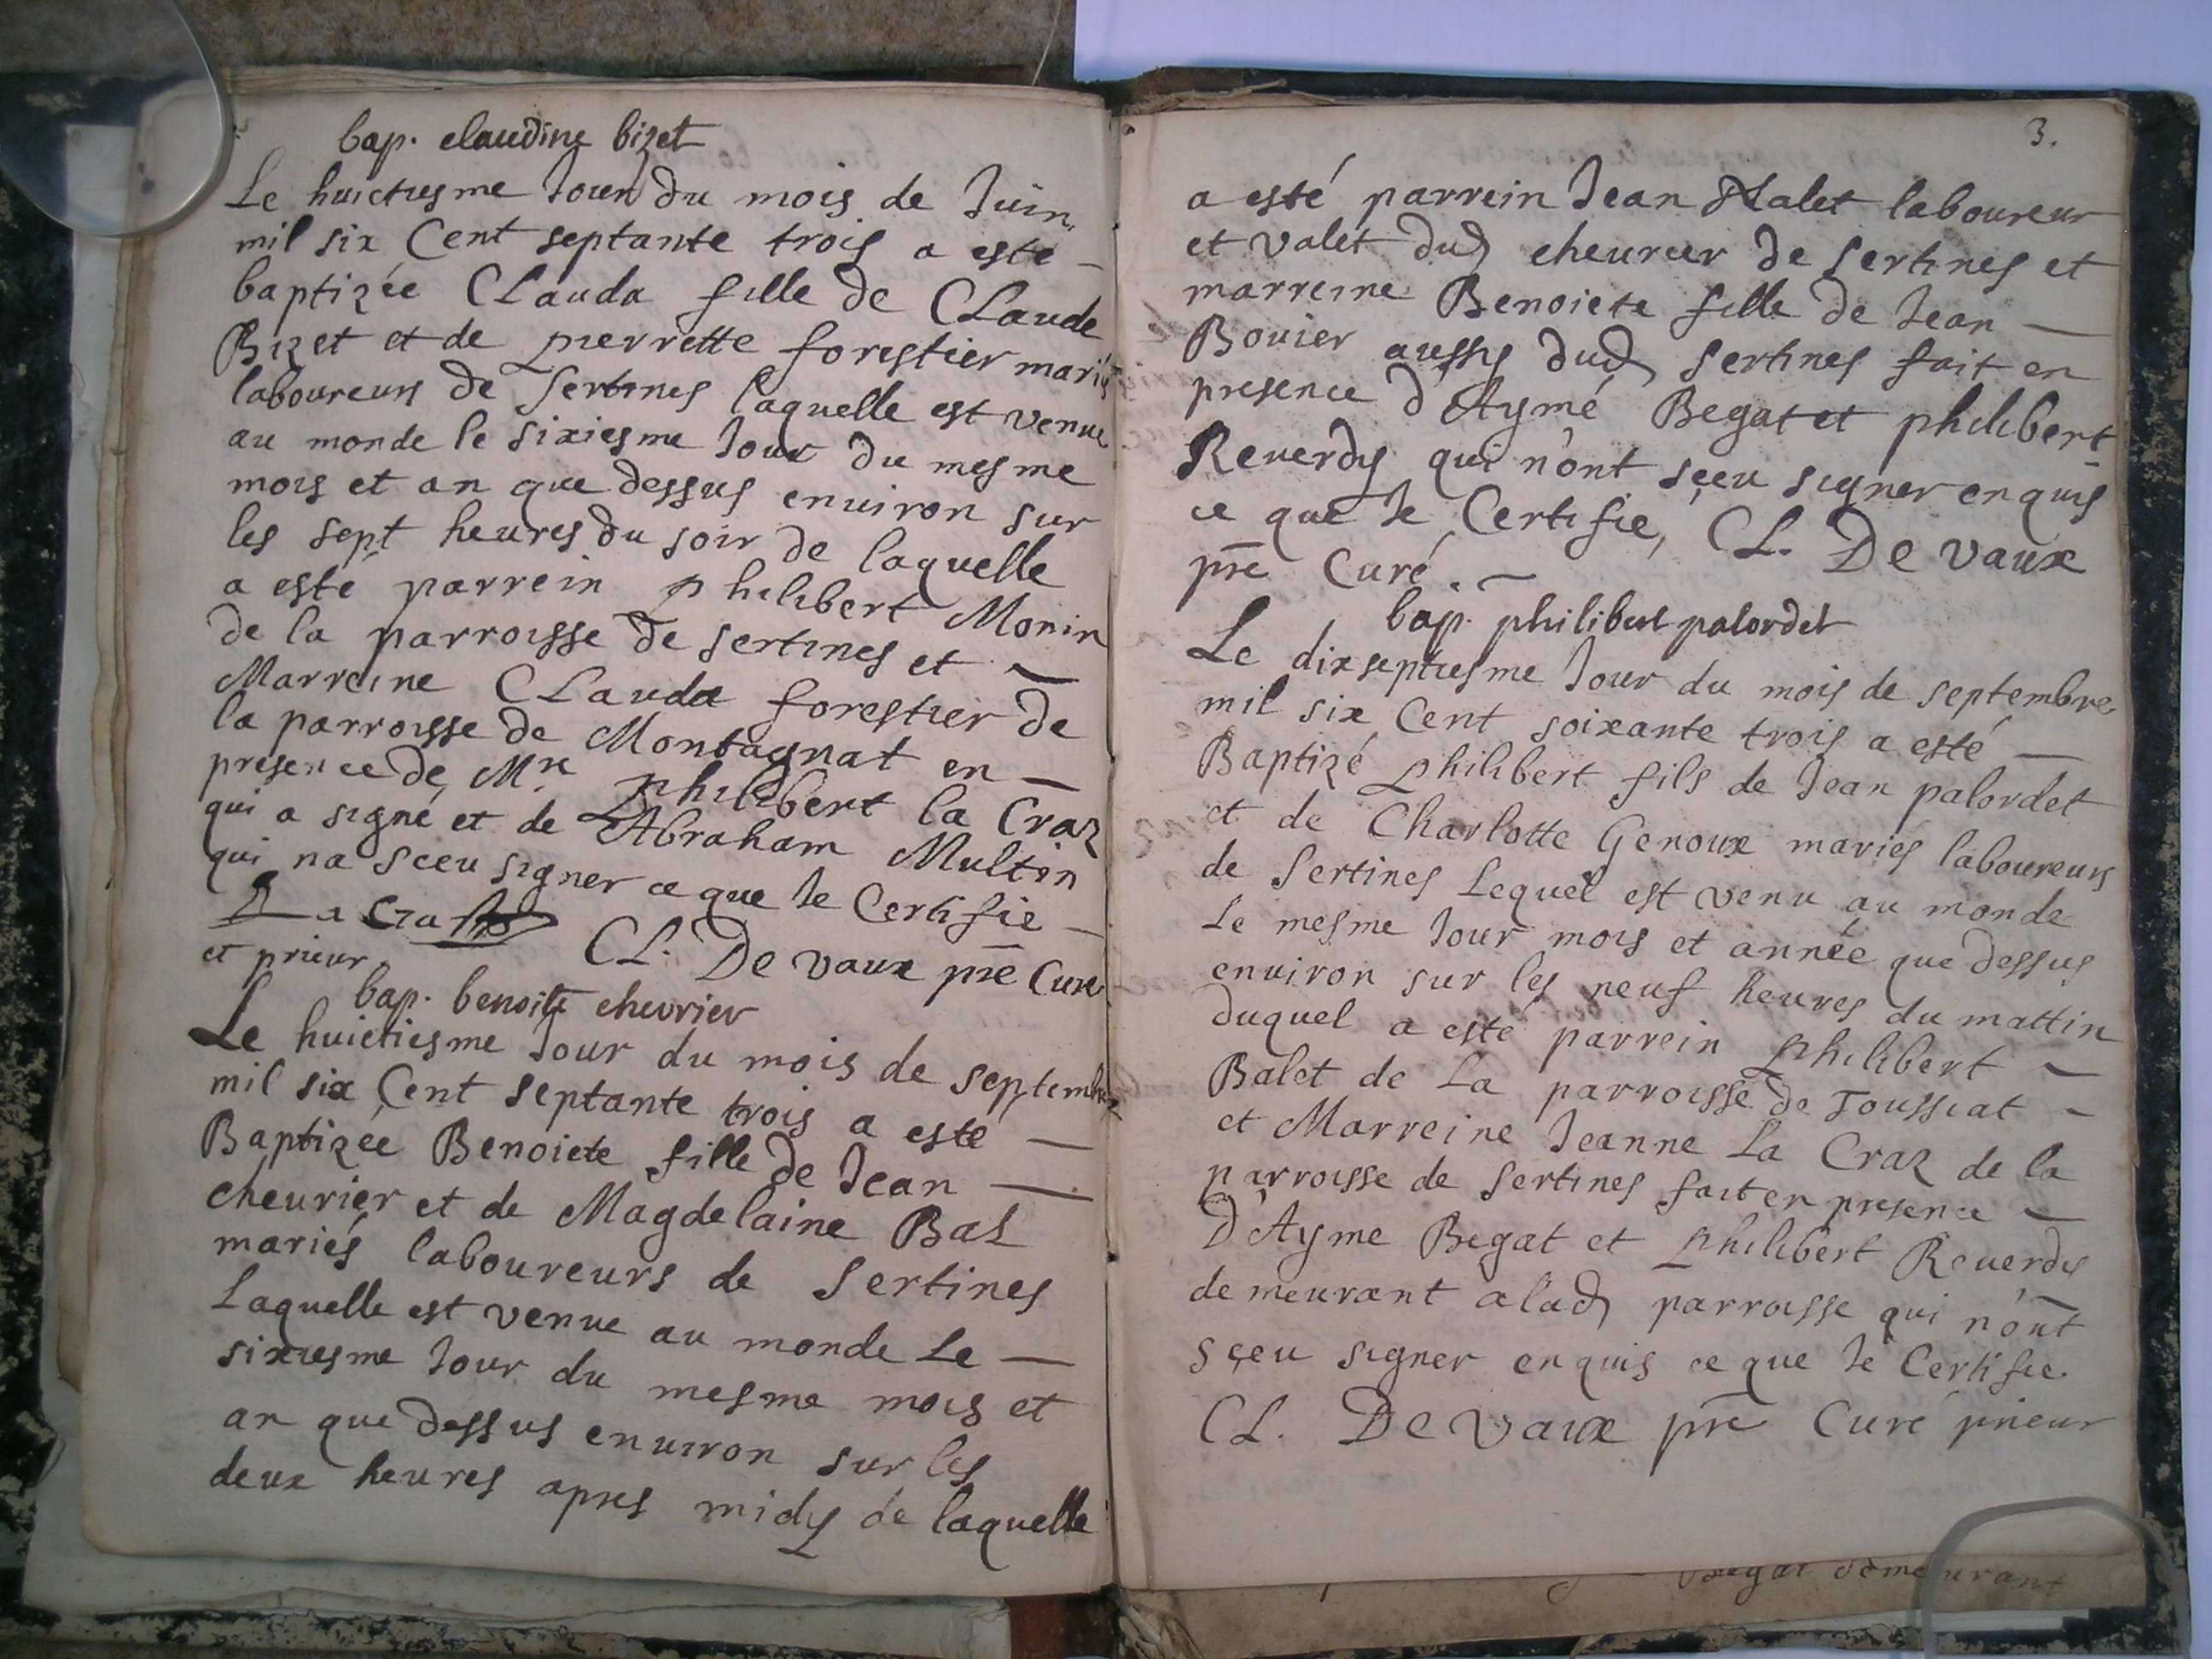 bap. claudine bizet
Le huictiesme Jour du mois de Juin
mil six Cent septante trois a esté
baptizée Clauda fille de Claude
Bizet et de pierrette forestier mariés
laboureurs de Sertines laquelle est venue
au monde le sixiesme Jour du mesme
mois et an que dessus environ sur
les sept heures du soir de laquelle
a esté parrein philibert Monin
de la parroisse de sertines et
Marreine Clauda forestier de
la parroisse de Montagnat en
presence de Mre philibert la Craz
qui a signé et de Abraham Multin
qui na sceu signer ce que Je Certifie
La Craz
CL. De vaux pre Curé
et prieur
bap. benoite chevrier
Le huictiesme Jour du mois de septembre
mil six Cent septante trois a esté
Baptizée Benoiete fille de Jean
cheurier et de Magdelaine Bal
mariés laboureurs de Sertines
Laquelle est venue au monde Le
sixiesme Jour du mesme mois et
an que dessus enuiron sur les
deux heures apres midy de laquelle
3.
a esté parrein Jean Nalet laboureur
et valet dud cheurier de Sertines et
marreine Benoiete fille de Jean
Bouier aussy dud Sertines fait en
presence d'Aymé Begat et philibert
Reuerdy qui n'ont sçeu signer enquis
ce que Je Certifie, CL. De vaux
pre Curé.
bap. philibert palordet
Le dixseptiesme Jour du mois de septembre
mil six Cent soixante trois a esté
Baptizé philibert fils de Jean palordet
et de Charlotte Genoux mariés laboureurs
de Sertines Lequel est venu au monde
Le mesme Jour mois et année que dessus
enuiron sur les neuf heures du mattin
duquel a esté parrein philibert
Balet de La parroisse de Toussiat
et Marreine Jeanne La Craz de la
parroisse de Sertines fait en presence
D'Ayme Begat et philibert Reuerdy
demeurant a lad parroisse qui n'ont
sçeu signer enquis ce que Je Certifie
CL. De vaux pre Curé prieur
Begat demeurant